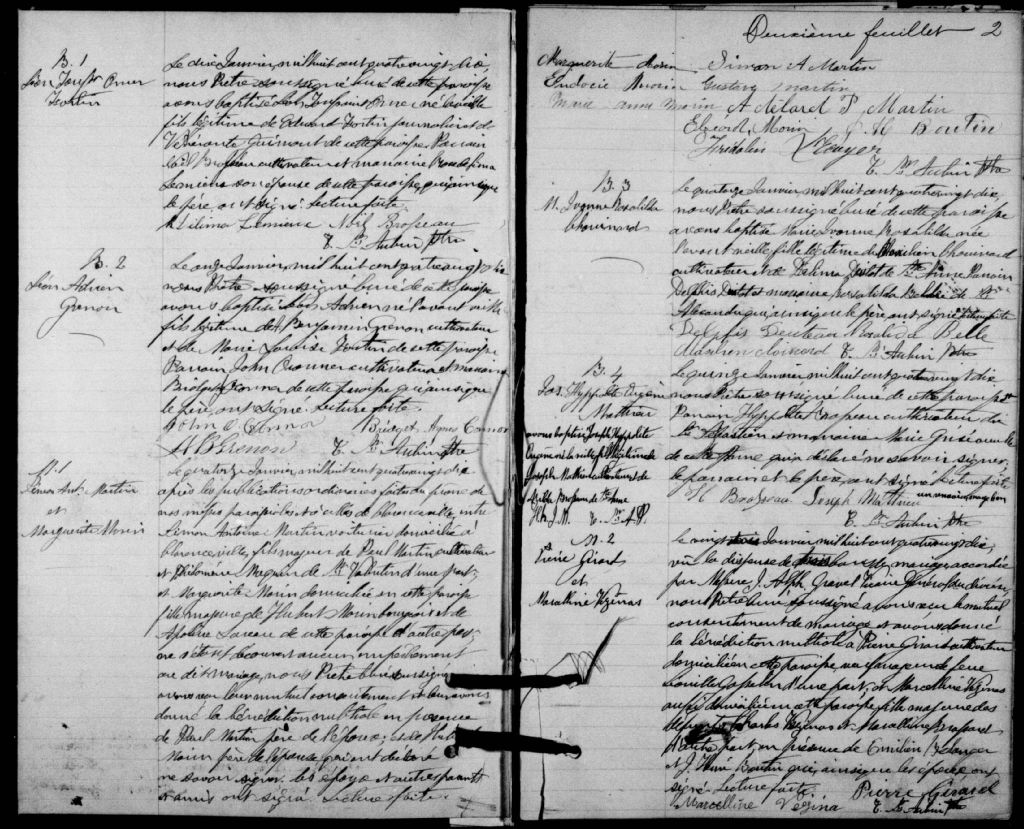 B. 1
Léon Joseph Omer
Fortin
Le dix Janvier, mil huit cent quatre vingt dix
nous Prêtre soussigné curé de cette paroisse
avons baptisé Léon Omer né la veille
fils légitime de Edouard Fortin journalier et de
Vénérante Guimont de cette paroisse Parrain
Noël Brosseau cultivateur et marraine
Lemieux son épouse de cette paroisse, qui ainsi que
le père, ont signé. Lecture faite.
Lemieux Noël Brosseau
T. St Aubin Ptre
B. 2
Léon Adrien
Grenon
Le onze Janvier, mil huit cent quatre vingt dix
nous Prêtre soussigné curé de cette paroisse
avons baptisé Léon Adrien né l'avant veille
fils légitime de A. Benjamin Grenon cultivateur
et de Marie Louise Fortin de cette paroisse
Parrain John Connor cultivateur et marraine
Bridget Connor de cette paroisse qui ainsi que
le père, ont signé. Lecture faite.
John O Connor Bridget Agnes Connor
A B Grenon T. St Aubin Ptre
M. 1
Simon Ant. Martin
et
Marguerite Morin
Le quatorze Janvier, mil huit cent quatre vingt dix
après les publications ordinaires faites au prône de
nos messes paroissiales et à celles de Clarenceville, entre
Simon Antoine Martin voiturier domicilié à
Clarenceville, fils majeur de Paul Martin, cultivateur
et Philomène de St Valentin d'une part,
et Marguerite Morin domiciliée en cette paroisse
fille majeure de Hubert Morin bourgeois et de
Apolline Lareau de cette paroisse d'autre part
ne s'étant découvert aucun empêchement
au dit mariage, nous Prêtre Curé soussigné
avons reçu leur mutuel consentement et leur avons
donné la bénédiction nuptiale en présence
de Paul Martin père de l'époux, et de Hubert
Morin père de l'épouse qui ont déclaré
ne savoir signer. les époux et autres parents
et amis ont signé. Lecture faite.
Deuxième feuillet 2
Marguerite Morin Simon A Martin
Eudoxie Morin Gustave Martin
Marie anne Morin Adélard P Martin
Morin J. H. Boutin
T. St Aubin Ptre
B. 3
M. Ivonne Rosatilda
Chouinard
Le quatorze Janvier, mil huit cent quatre vingt dix,
nous Prêtre soussigné curé de cette paroisse
avons baptisé Marie Ivonne Rosatilda née
l'avant veille fille légitime de Chouinard
cultivateur et de de Ste Anne Parrain
Delphis et marraine Rosatilda de St
Alexandre qui, ainsi que le père ont signé Lecture faite
Delphis Belle
T. St Aubin Ptre
B. 4
Jos. Hyppolite Eugène
Mathieu
avons baptisé Joseph Hyppolite
Eugène né la veille fils légitime de
Joseph Mathieu cultivateur et de
Brosseau de Ste Anne
H.B. J.M. T. St A. P.
Le quinze Janvier mil huit cent quatre vingt dix
nous Prêtre soussigné curé de cette paroisse
Parrain Hyppolite Brosseau cultivateur de
St Sébastien et marraine Marie
de cette qui a déclaré ne savoir signer,
le parrain et le père, ont signé Lecture faite
H Brosseau Joseph Mathieu un renvoi en marge bon
T. St Aubin Ptre
M. 2
Pierre Girard
et
Marcelline Vézinas
Le vingt Janvier mil huit cent quatre vingt dix,
vu la dispense de trois bans de mariage accordée
par Messire J. Alph. Gravel Vicaire Général du diocèse,
nous Prêtre Curé soussigné avons reçu le mutuel
consentement de mariage et avons donné
la bénédiction nuptiale à Pierre Girard cultivateur
domicilié en cette paroisse, veuf majeur de feue
d'une part, et Marcelline Vézinas
aussi domiciliée en cette paroisse fille majeure des
défunts Charles Vézinas et Marcelline Brossard
d'autre part, en présence de Emilien
et J. Henri Boutin qui, ainsi que les époux ont
signé Lecture faite. Pierre Girard
Marcelline Vézina T. St Aubin Ptre